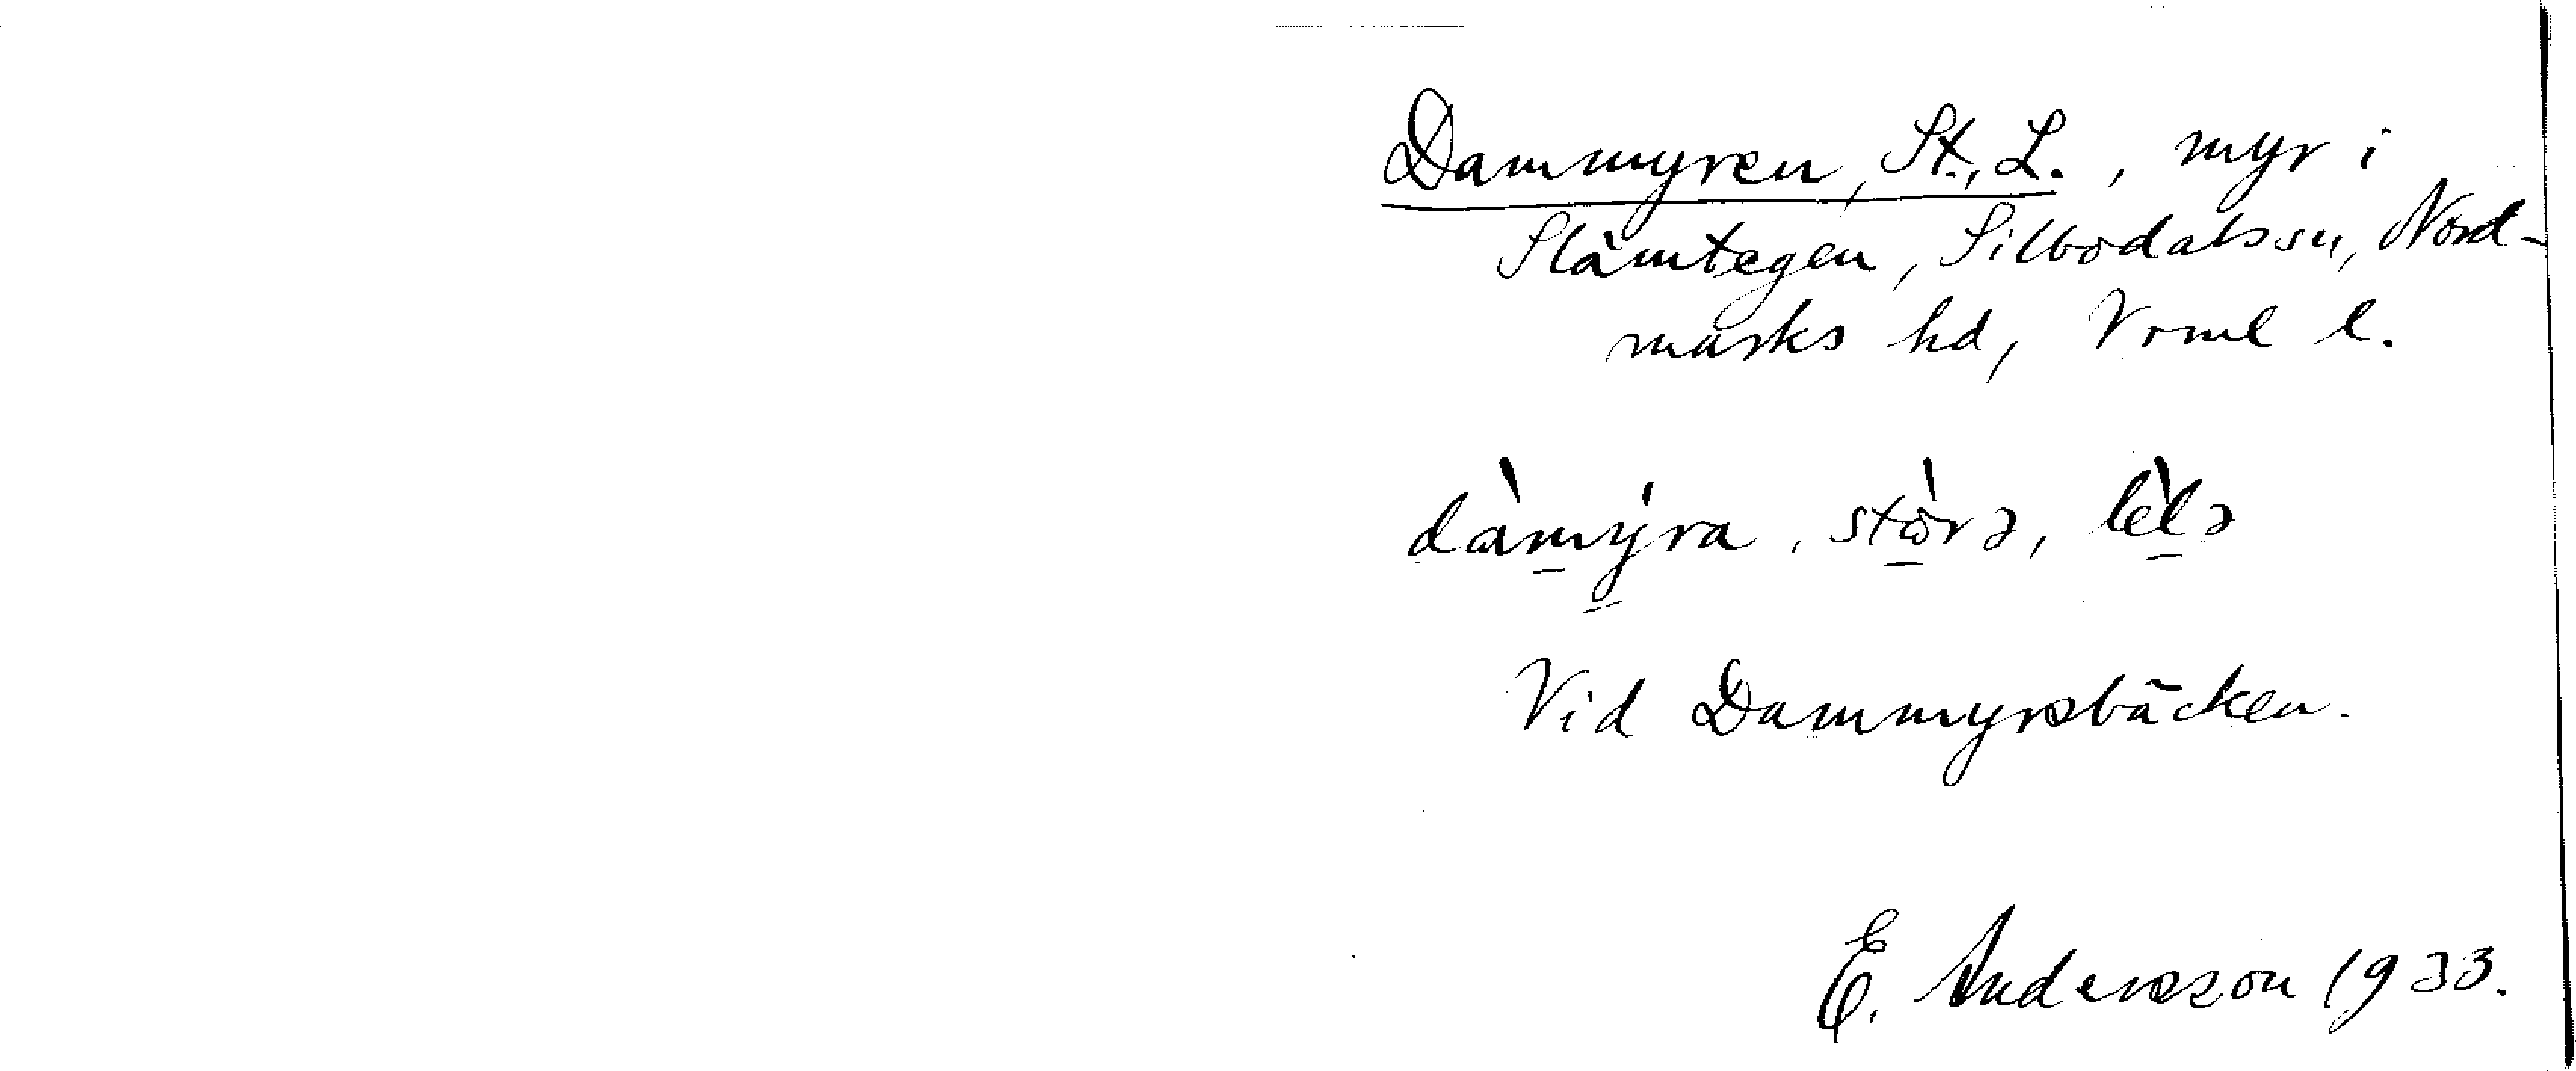 Dammyren, St., L., myr i
Slämtegen, Silbodals sn, Nord-
marks hd, Vrml l.
dàmýra, stòrə, lèlə
Vid Dammyrsbäcken.
E. Andersson 1933.